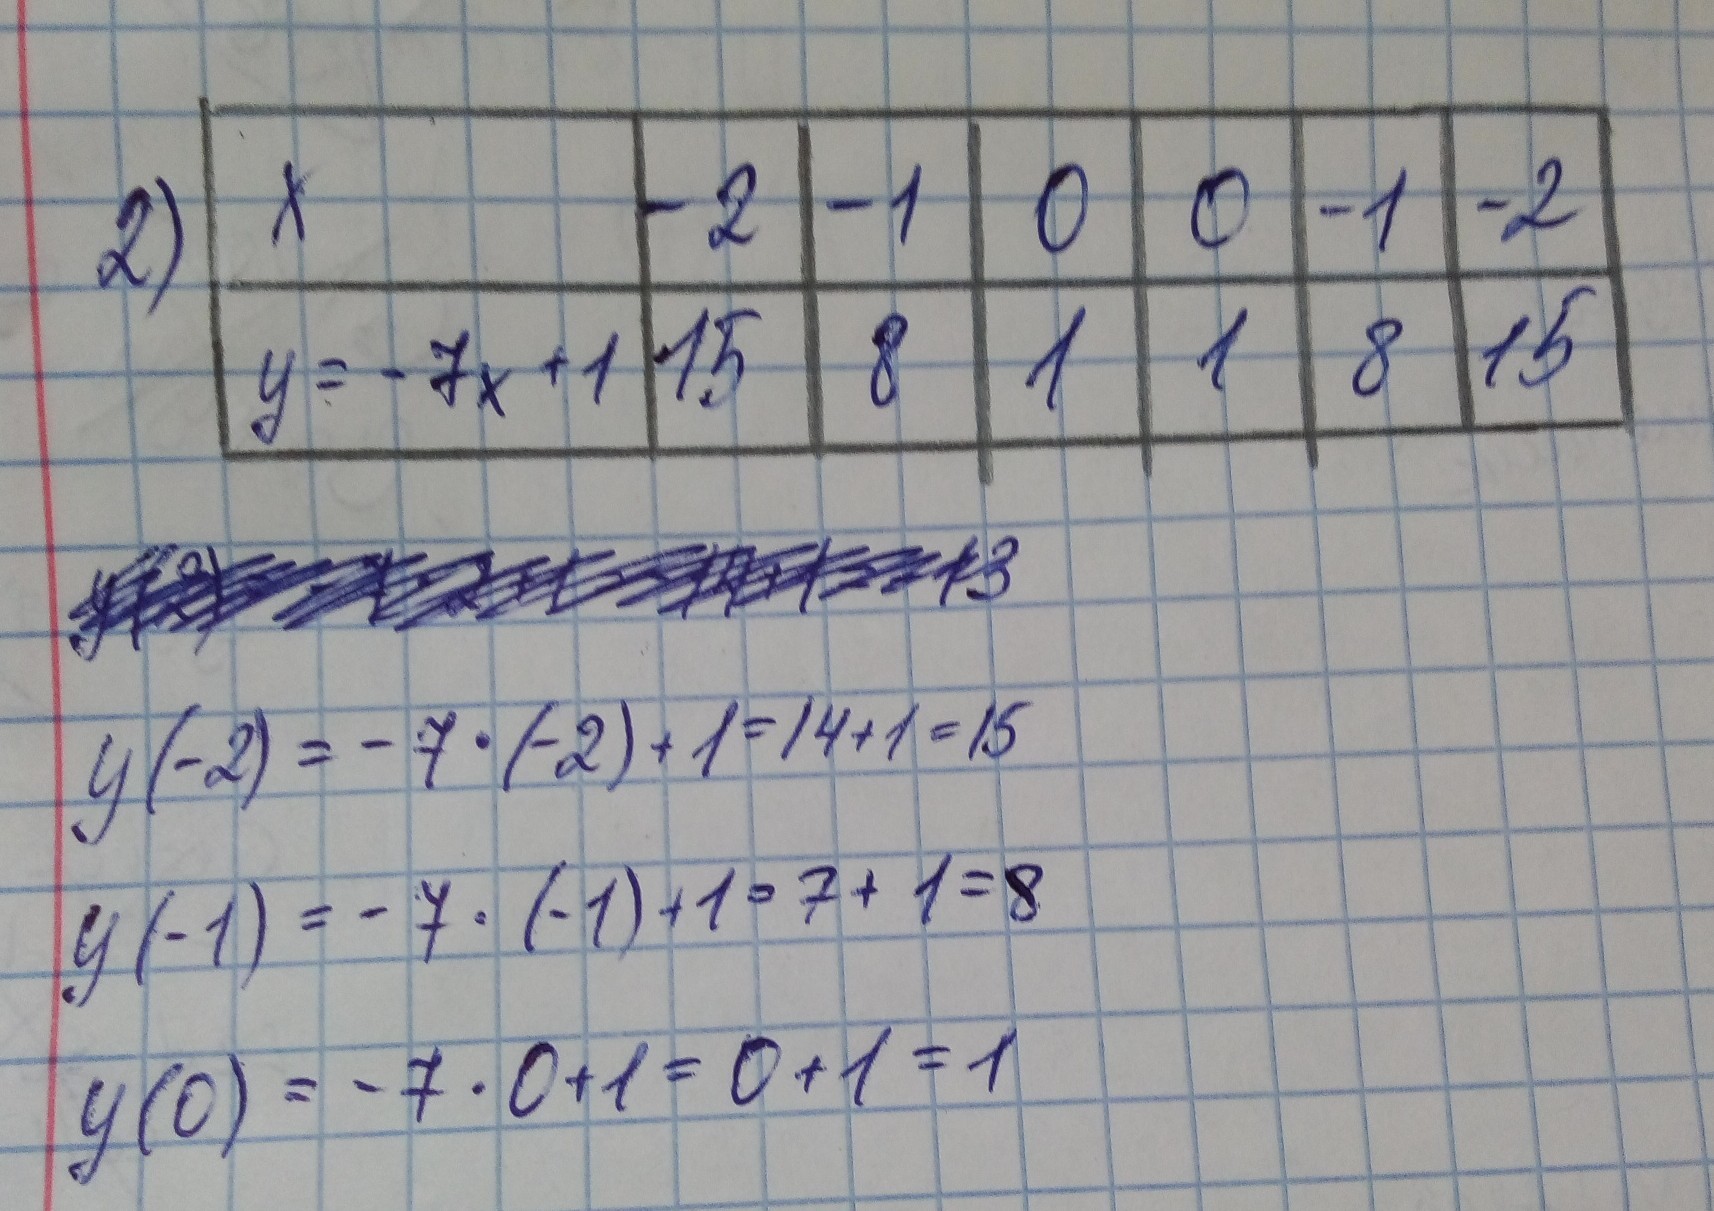 2)
x -2 -1 0 0 -1 -2
y = -7x +1 15 8 1 1 8 15
y(-2) = -7·(-2)+1=14+1=15
y(-1) = -7·(-1)+1=7+1=8
y(0) = -7·0+1=0+1=1